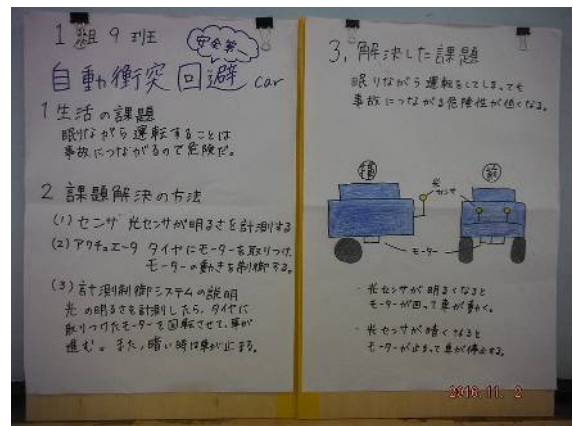 1組 9班
安全第一
自動衝突回避car
1 生活の課題
眠りながら運転することは
事故につながるので危険だ。
2 課題解決の方法
(1) センサ 光センサが明るさを計測する
(2) アクチュエータ タイヤにモーターを取りつけ、
モーターの動きを制御する。
(3) 計測制御システムの説明
光の明るさを計測したら、タイヤに
取りつけたモーターを回転させて、車が
進む。また、暗い時は車が止まる。
3. 解決した課題
眠りながら運転をしてしまっても
事故につながる危険性が低くなる。
横
前
光
センサ
モーター
・光センサが明るくなると
モーターが回って車が動く。
・光センサが暗くなると
モーターが止まって車が停止する。
2016.11. 2